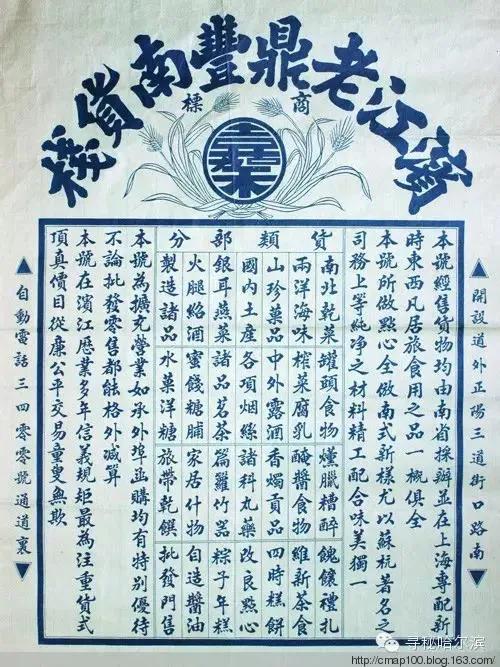 濱江老鼎豐南貨棧
商標
開設道外正陽三道街口路南
本號經售貨物均由南省採辦並在上海專配新
時東西凡居旅食用之品一概俱全
本號所做點心全倣南式新樣尤以蘇杭著名之
司務上等純淨之材料精工配合味美獨一
貨類部分
南北乾菜 罐頭食物 燻臘糟醉 餽饟禮扎
兩洋海味 榨菜腐乳 醃醬食物 維新茶食
山珍菓品 中外露酒 香燭貢品 四時糕餅
國內土産 各項烟絲 諸料丸藥 改良點心
銀耳燕菜 諸品名茶 籮竹器 粽子年糕
火腿紹酒 蜜餞糖脯 家居什物 自造醬油
製造諸品 水菓洋糖 旅帶乾饌 批發門售
本號為擴充營業如承外埠函購均有特別優待
不論批發零售都能格外減算
本號在濱江歷業多年信義規矩最為注重貨式
頂真價目從廉公平交易童叟無欺
自動電話三四零零號通道裏
寻秘哈尔滨
http://cmap100.blog.163.com/